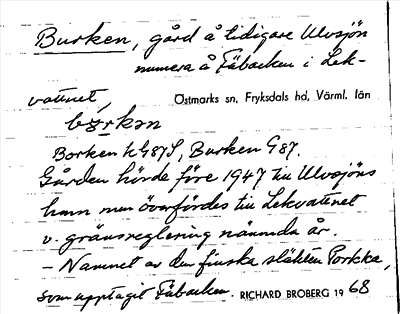 Burken, gård å tidigare Ulvsjön
numera å Fäbacken i Lek-
vattnet, Östmarks sn, Fryksdals hd, Värml. län
Borken KG87S, Burken G87.
Gården hörde före 1947 till Ulvsjöns
hmn men överfördes till Lekvattnet
v. gränsreglering nämnda år.
- Namnet av den finska släkten Porkka,
som upptagit Fäbacken. RICHARD BROBERG 1968